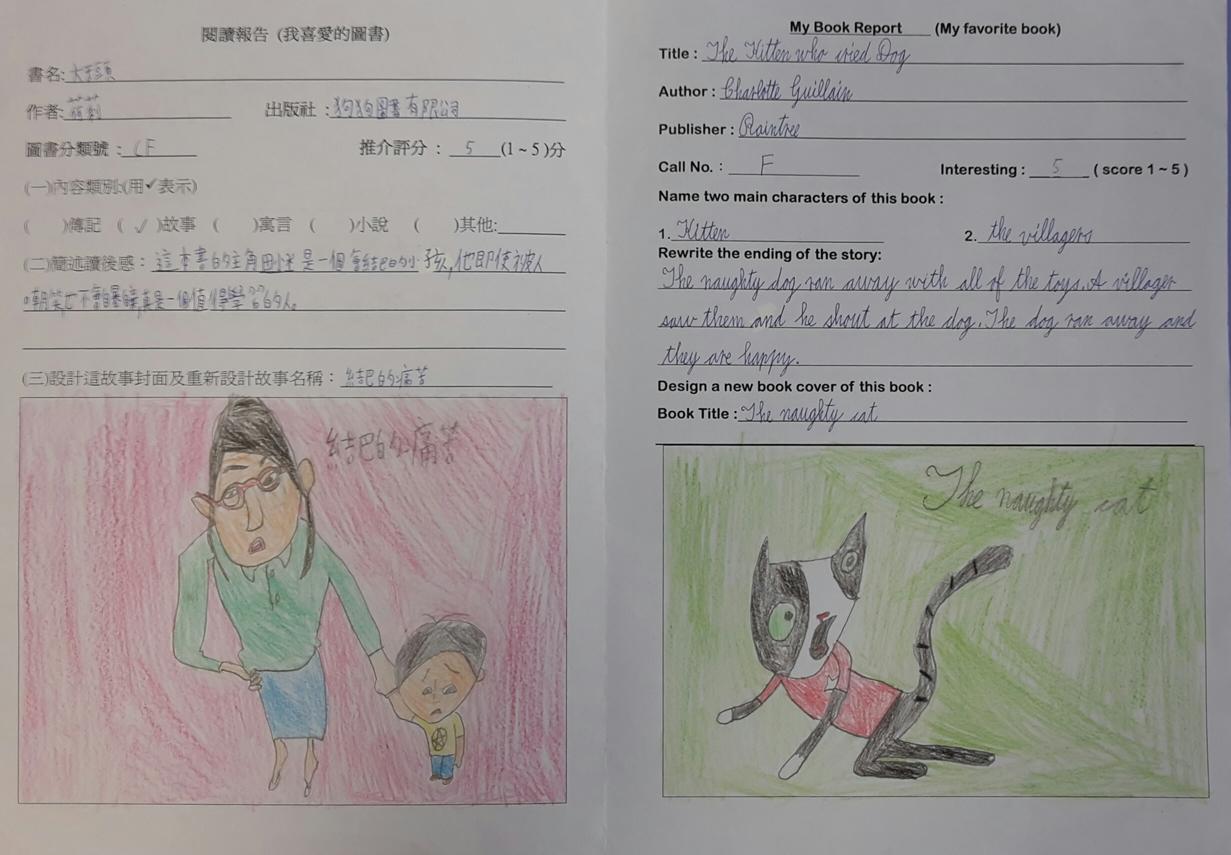 閱讀報告 (我喜愛的圖書)
書名:大舌頭
作者:
出版社：狗狗圖書有限公司
圖書分類號：CF
推介評分：5(1~5)分
(一)內容類別:(用✔表示)
( )傳記 ( ✓ )故事 ( )寓言 ( )小說 ( )其他:
(二)簡述讀後感：這本書的主角 是一個 結巴的小孩,他即使被人
嘲笑也不 真是一個值得學習的人。
(三)設計這故事封面及重新設計故事名稱：結巴的痛苦
結巴的痛苦
My Book Report (My favorite book)
Title : The Kitten who cried Dog
Author : Charlotte Guillain
Publisher : Raintree
Call No. : F
Interesting : 5 ( score 1 ~ 5 )
Name two main characters of this book :
1. Kitten 2. the villagers
Rewrite the ending of the story:
The naughty dog ran away with all of the toys. A villager
saw them and he shout at the dog. The dog ran away and
they are happy.
Design a new book cover of this book :
Book Title : The naughty cat
The naughty cat